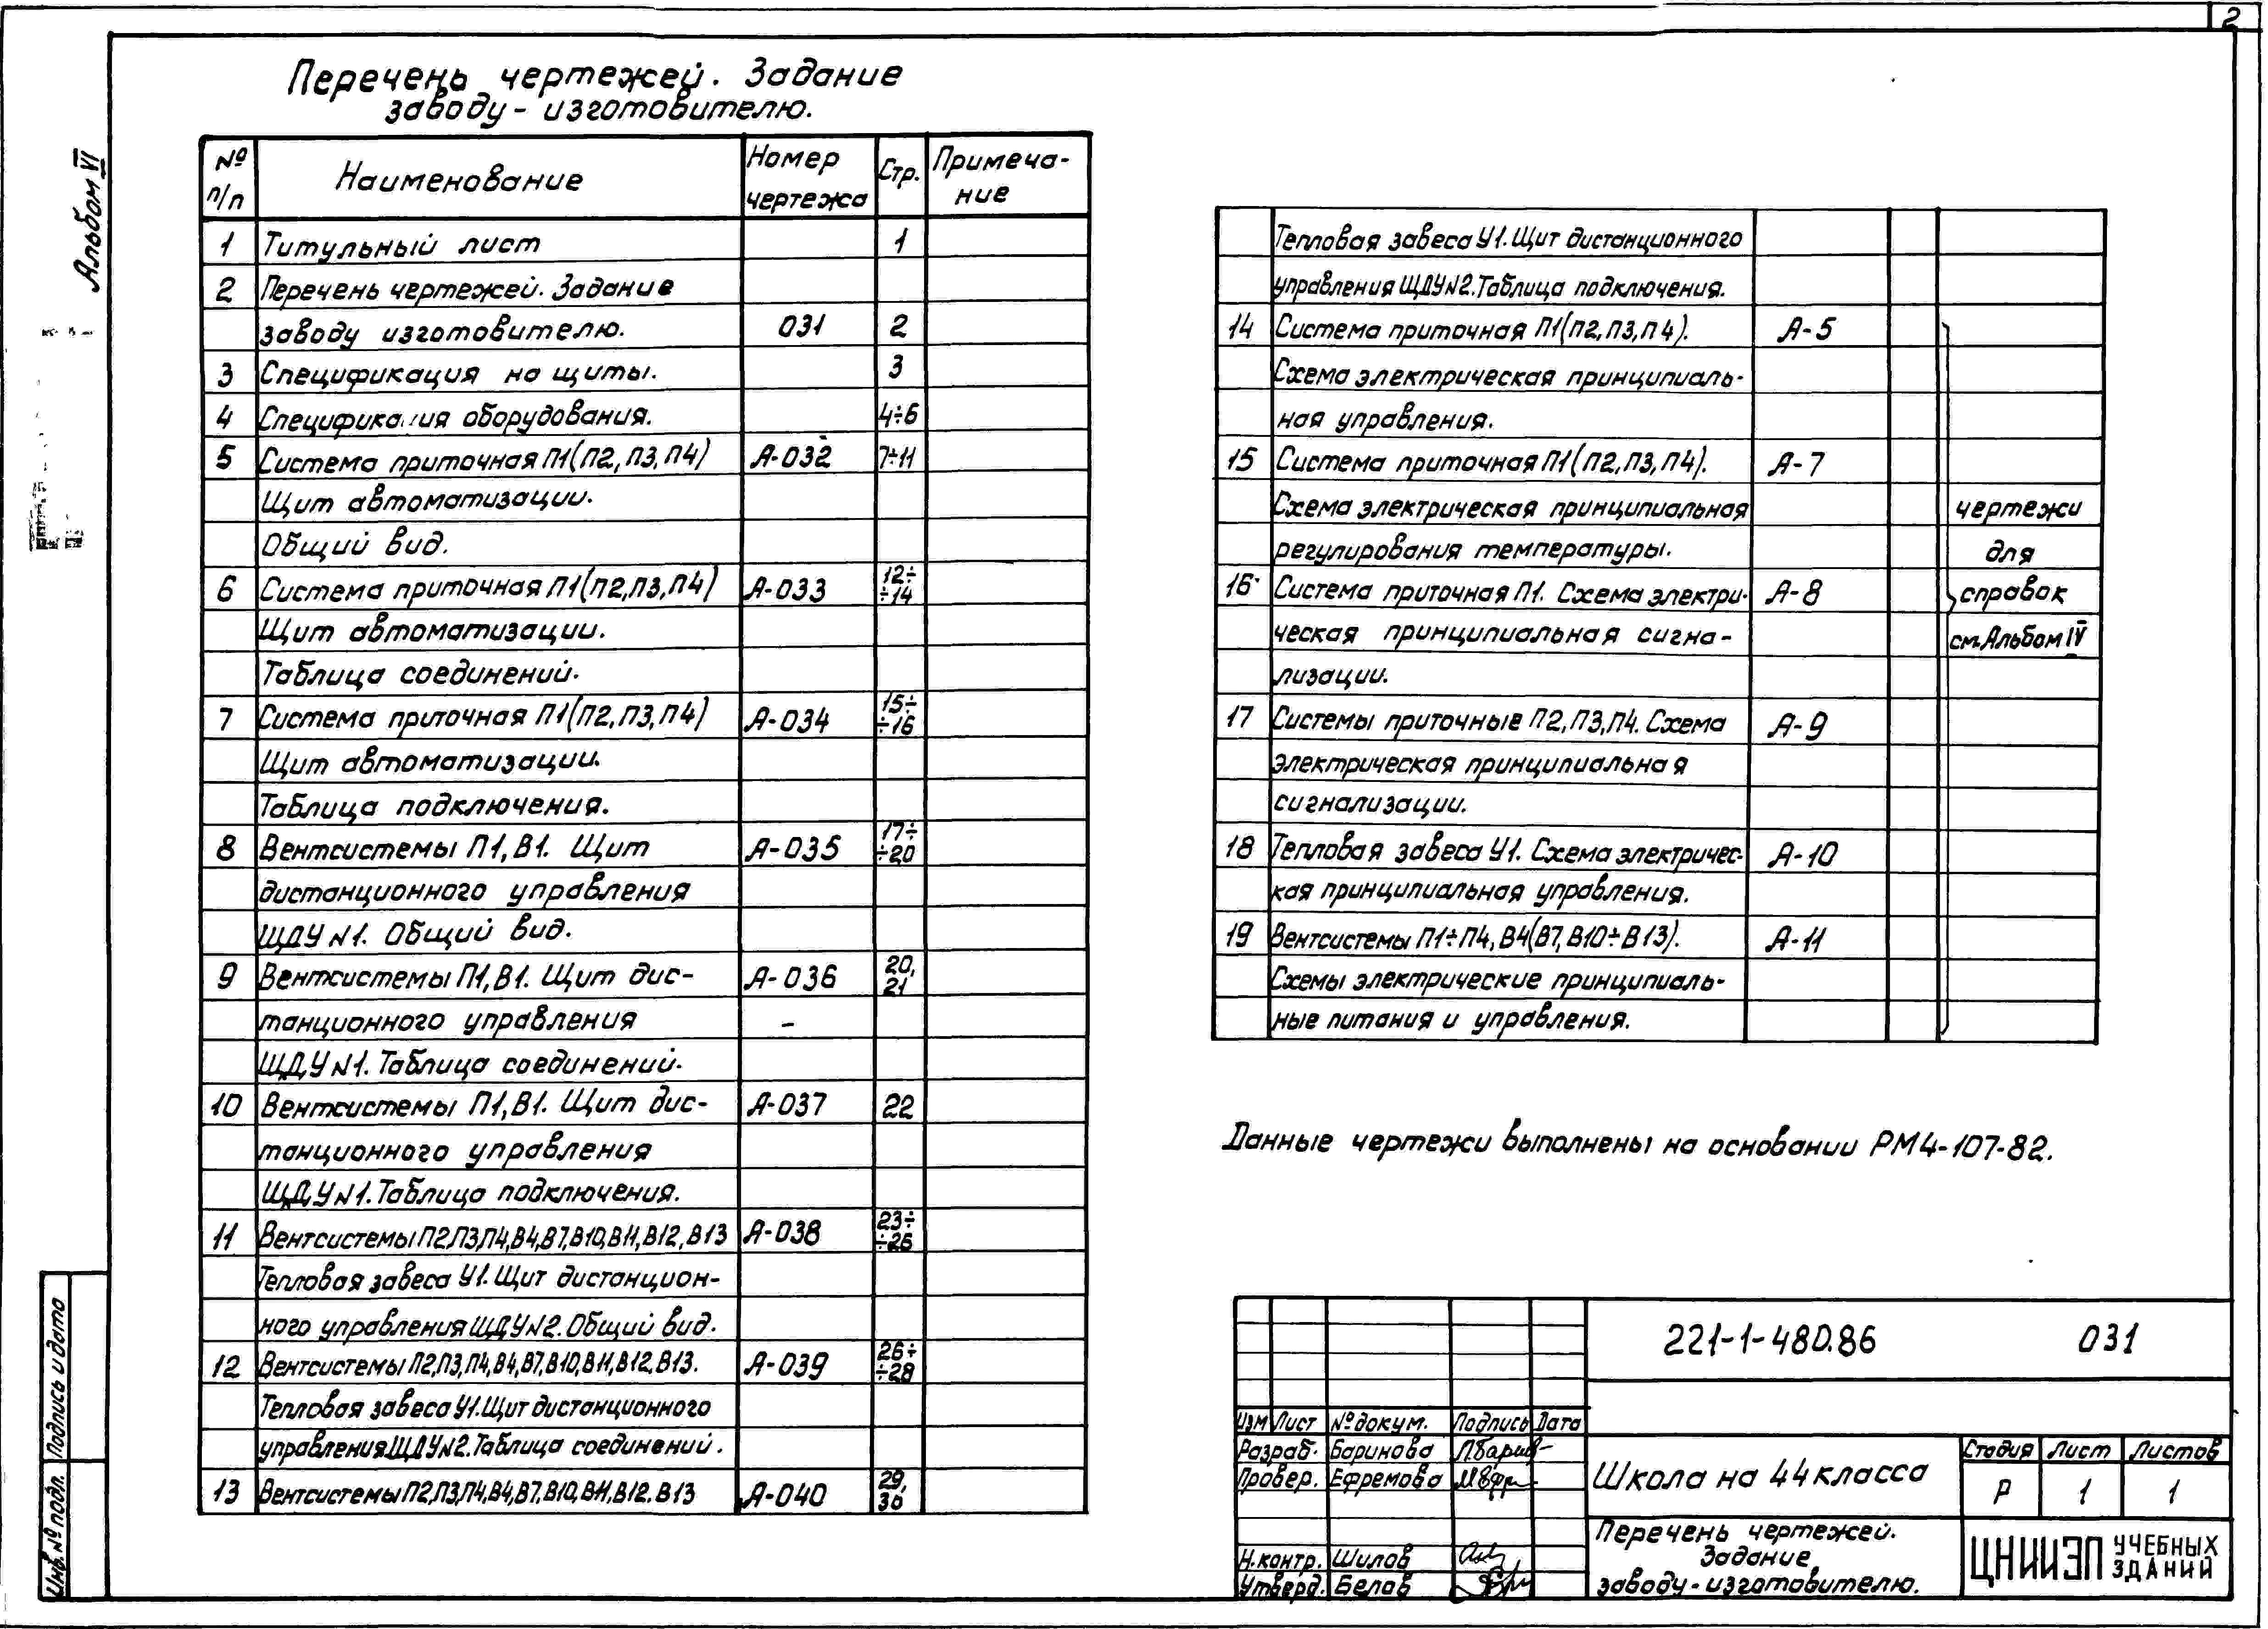 2
Альбом VI
Перечень чертежей. Задание
заводу-изготовителю.
№ п/п Наименование Номер чертежа Стр. Примеча-ние
1 Титульный лист 1
2 Перечень чертежей. Задание
заводу изготовителю. 031 2
3 Спецификация на щиты. 3
4 Спецификация оборудования. 4÷6
5 Система приточная П1(П2,П3,П4) А-032 7÷11
Щит автоматизации.
Общий вид.
6 Система приточная П1(П2,П3,П4) А-033 12÷÷14
Щит автоматизации.
Таблица соединений.
7 Система приточная П1(П2,П3,П4) А-034 15÷÷16
Щит автоматизации.
Таблица подключения.
8 Вентсистемы П1,В1. Щит А-035 17÷÷20
дистанционного управления
ЩДУ N1. Общий вид.
9 Вентсистемы П1,В1. Щит дис- А-036 20,21
танционного управления –
ЩДУ N1. Таблица соединений.
10 Вентсистемы П1,В1. Щит дис- А-037 22
танционного управления
ЩДУ N1. Таблица подключения.
11 Вентсистемы П2,П3,П4,В4,В7,В10,В11,В12,В13 А-038 23÷÷26
Тепловая завеса У1. Щит дистанцион-
ного управления ЩДУ N2. Общий вид.
12 Вентсистемы П2,П3,П4,В4,В7,В10,В11,В12,В13. А-039 26÷÷28
Тепловая завеса У1. Щит дистанционного
управления ЩДУ N2. Таблица соединений.
13 Вентсистемы П2,П3,П4,В4,В7,В10,В11,В12,В13 А-040 29,30
Тепловая завеса У1. Щит дистанционного
управления ЩДУ N2. Таблица подключения.
14 Система приточная П1(П2,П3,П4). А-5
Схема электрическая принципиаль-
ная управления.
15 Система приточная П1(П2,П3,П4). А-7
Схема электрическая принципиальная чертежи
регулирования температуры. для
16 Система приточная П1. Схема электри- А-8 справок
ческая принципиальная сигна- см.Альбом IV
лизации.
17 Системы приточные П2,П3,П4. Схема А-9
электрическая принципиальная
сигнализации.
18 Тепловая завеса У1. Схема электричес- А-10
кая принципиальная управления.
19 Вентсистемы П1÷П4, В4(В7,В10÷В13). А-11
Схемы электрические принципиаль-
ные питания и управления.
Данные чертежи выполнены на основании РМ4-107-82.
221-1-480.86 031
Изм Лист № докум. Подпись Дата
Разраб. Баринова
Провер. Ефремова
Н.контр. Шилов
Утверд. Белов
Школа на 44 класса
Стадия Лист Листов
Р 1 1
Перечень чертежей.
Задание
заводу-изготовителю.
ЦНИИЭП УЧЕБНЫХ ЗДАНИЙ
Подпись и дата
Инв.№ подл.